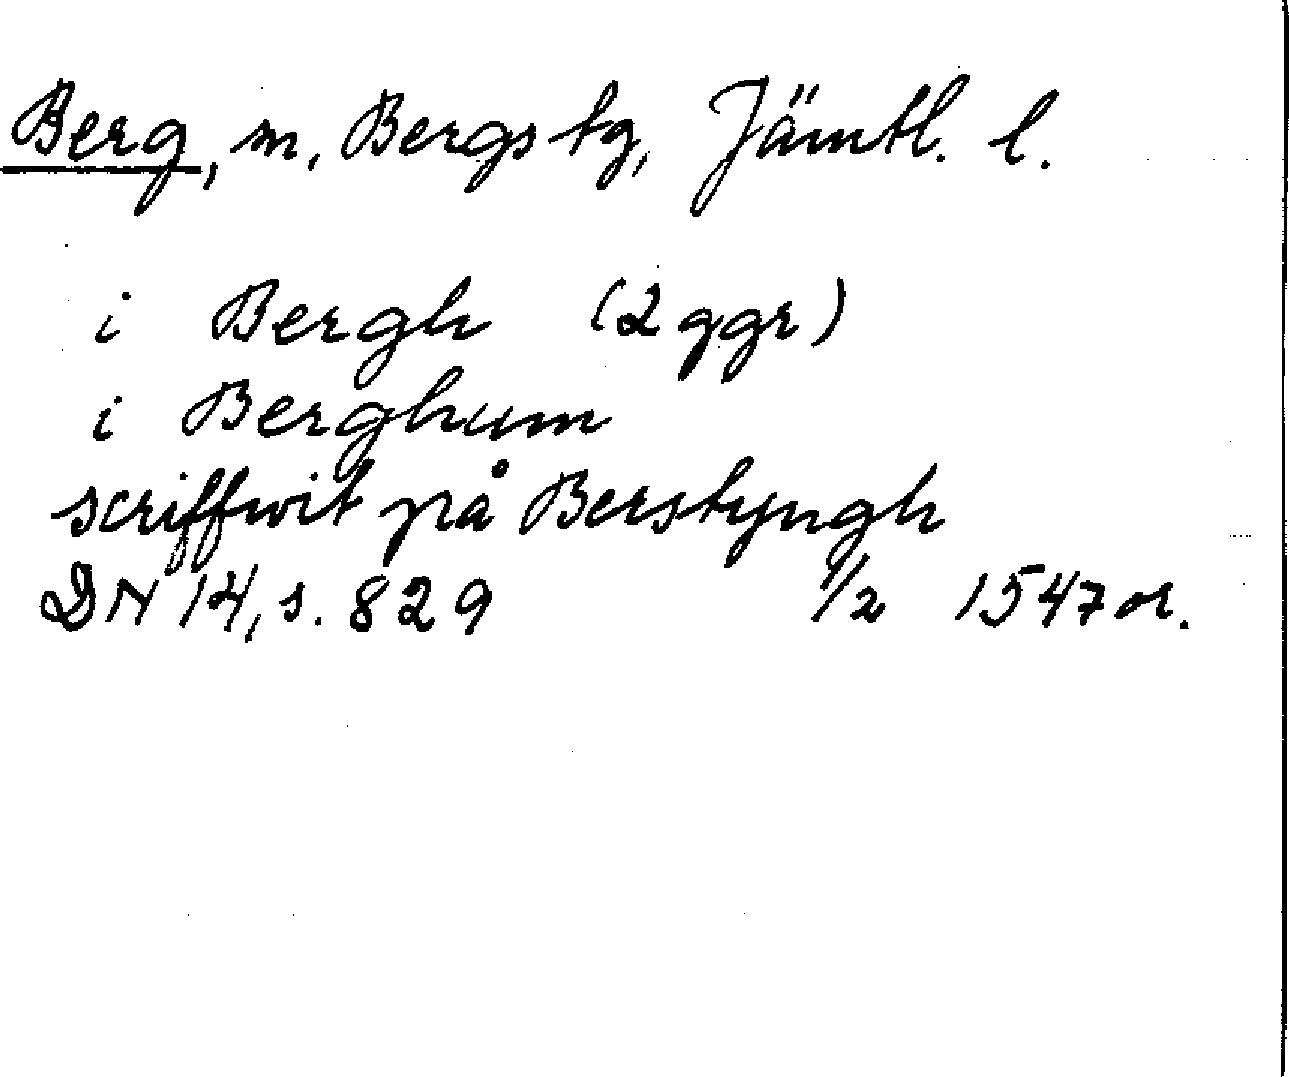 Berg, sn, Bergs tg, Jämtl. l.
i Bergh (2 ggr)
i Berghum
scriffwit på Berstyngh
DN 14, s. 829 1/2 1547 or.